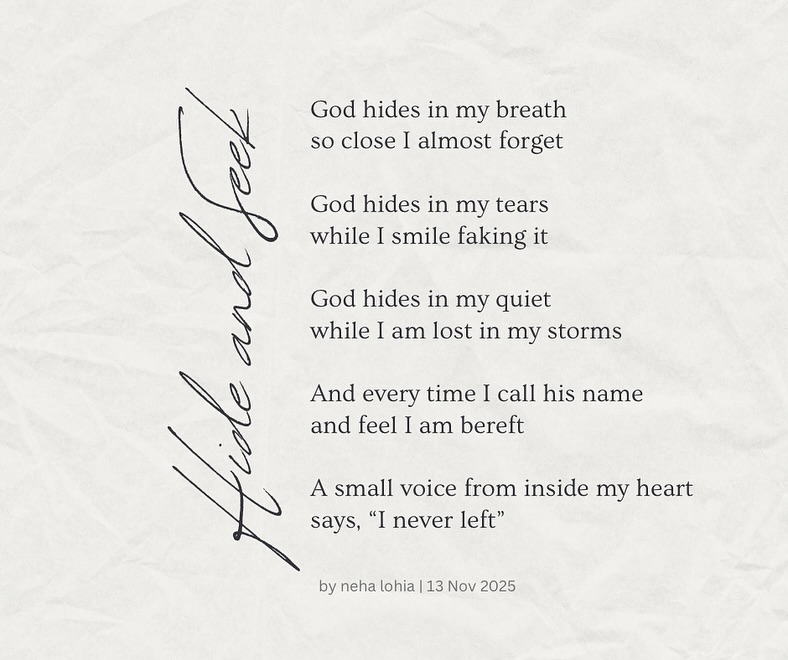 Hide and Seek
God hides in my breath
so close I almost forget
God hides in my tears
while I smile faking it
God hides in my quiet
while I am lost in my storms
And every time I call his name
and feel I am bereft
A small voice from inside my heart
says, “I never left”
by neha lohia | 13 Nov 2025